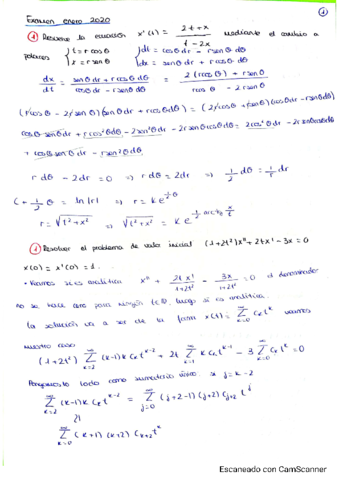 Examen enero 2020
①
① Resolver la ecuación x'(t) = (2t+x)/(t-2x) mediante el cambio a
polares { t = r cosθ { dt = cosθ dr - r senθ dθ
{ x = r senθ { dx = senθ dr + r cosθ dθ
dx/dt = (senθ dr + r cosθ dθ)/(cosθ dr - r senθ dθ) = (2(r cosθ) + r senθ)/(r cosθ - 2r senθ)
(r cosθ - 2r senθ)(senθ dr + r cosθ dθ) = (2r cosθ + r senθ)(cosθ dr - r senθ dθ)
cosθ senθ dr + r cos²θ dθ - 2sen²θ dr - 2r senθ cosθ dθ = 2cos²θ dr - 2r senθ cosθ dθ
+ cosθ senθ dr - r sen²θ dθ
r dθ - 2dr = 0 ⇒ r dθ = 2dr ⇒ 1/2 dθ = 1/r dr
C + 1/2 θ = ln|r| ⇒ r = k e^(½θ)
r = √(t²+x²) ⇒ √(t²+x²) = k e^(½ arctg x/t)
① Resolver el problema de valor inicial (1+2t²)x'' + 2tx' - 3x = 0
x(0) = x'(0) = 1.
· Veamos si es analítica x'' + 2tx'/(1+2t²) - 3x/(1+2t²) = 0 el denominador
no se hace cero para ningún t∈ℝ, luego si es analítica.
la solución va a ser de la forma x(t) = ∑_{k=0}^{∞} c_k t^k veamos
nuestro caso
(1+2t²) ∑_{k=2}^{∞} (k-1)k c_k t^{k-2} + 2t ∑_{k=1}^{∞} k c_k t^{k-1} - 3 ∑_{k=0}^{∞} c_k t^k = 0
Pongamos todo como sumatorio único si j = k-2
∑_{k=2}^{∞} (k-1)k c_k t^{k-2} = ∑_{j=0}^{∞} (j+2-1)(j+2) c_{j+2} t^j
∑_{k=0}^{∞} (k+1)(k+2) c_{k+2} t^k
Escaneado con CamScanner